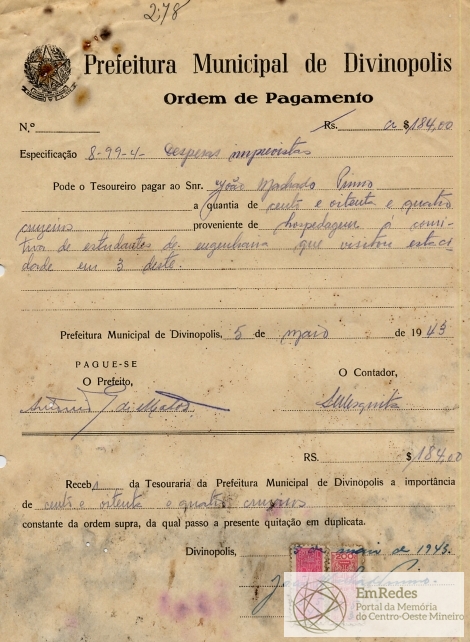 278
Prefeitura Municipal de Divinopolis
Ordem de Pagamento
N.º Rs. $184,00
Especificação 8-99-4- despesas imprevistas
Pode o Tesoureiro pagar ao Snr. João Machado
a quantia de cento e oitenta e quatro
cruzeiros proveniente de hospedagem à comi-
tiva de estudantes de engenharia que visitou esta ci-
dade em 3 deste.
Prefeitura Municipal de Divinopolis, 5 de maio de 1943
PAGUE-SE
O Prefeito,
O Contador,
RS. $184,00
Receb da Tesouraria da Prefeitura Municipal de Divinopolis a importância
de cento e oitenta e quatro cruzeiros
constante da ordem supra, da qual passo a presente quitação em duplicata.
Divinopolis, 5 de maio de 1943.
200
EmRedes
Portal da Memória
do Centro-Oeste Mineiro